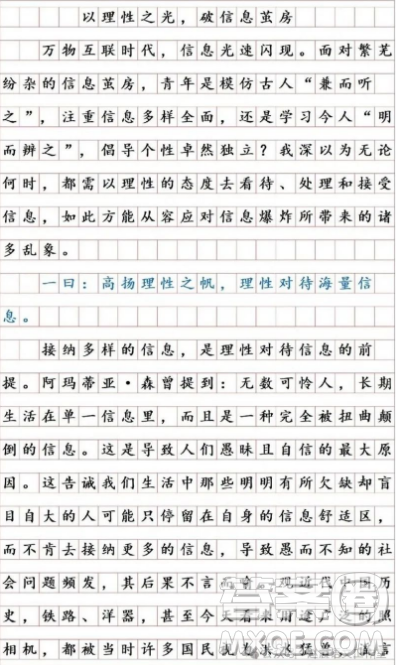 以理性之光，破信息茧房
万物互联时代，信息光速闪现。面对繁芜
纷杂的信息茧房，青年是模仿古人“兼而听
之”，注重信息多样全面，还是学习今人“明
而辨之”，倡导个性卓然独立？我深以为无论
何时，都需以理性的态度去看待、处理和接受
信息，如此方能从容应对信息爆炸所带来的诸
多乱象。
一曰：高扬理性之帆，理性对待海量信
息。
接纳多样的信息，是理性对待信息的前
提。阿玛蒂亚·森曾提到：无数可怜人，长期
生活在单一信息里，而且是一种完全被扭曲颠
倒的信息。这是导致人们愚昧且自信的最大原
因。这告诫我们生活中那些明明有所欠缺却盲
目自大的人可能只停留在自身的信息舒适区，
而不肯去接纳更多的信息，导致愚而不知的社
会问题频发，其后果不言而喻。观近代中国历
史，铁路、洋器，甚至今天看来司空见的照
相机，都被当时许多国民视为洪水猛兽，